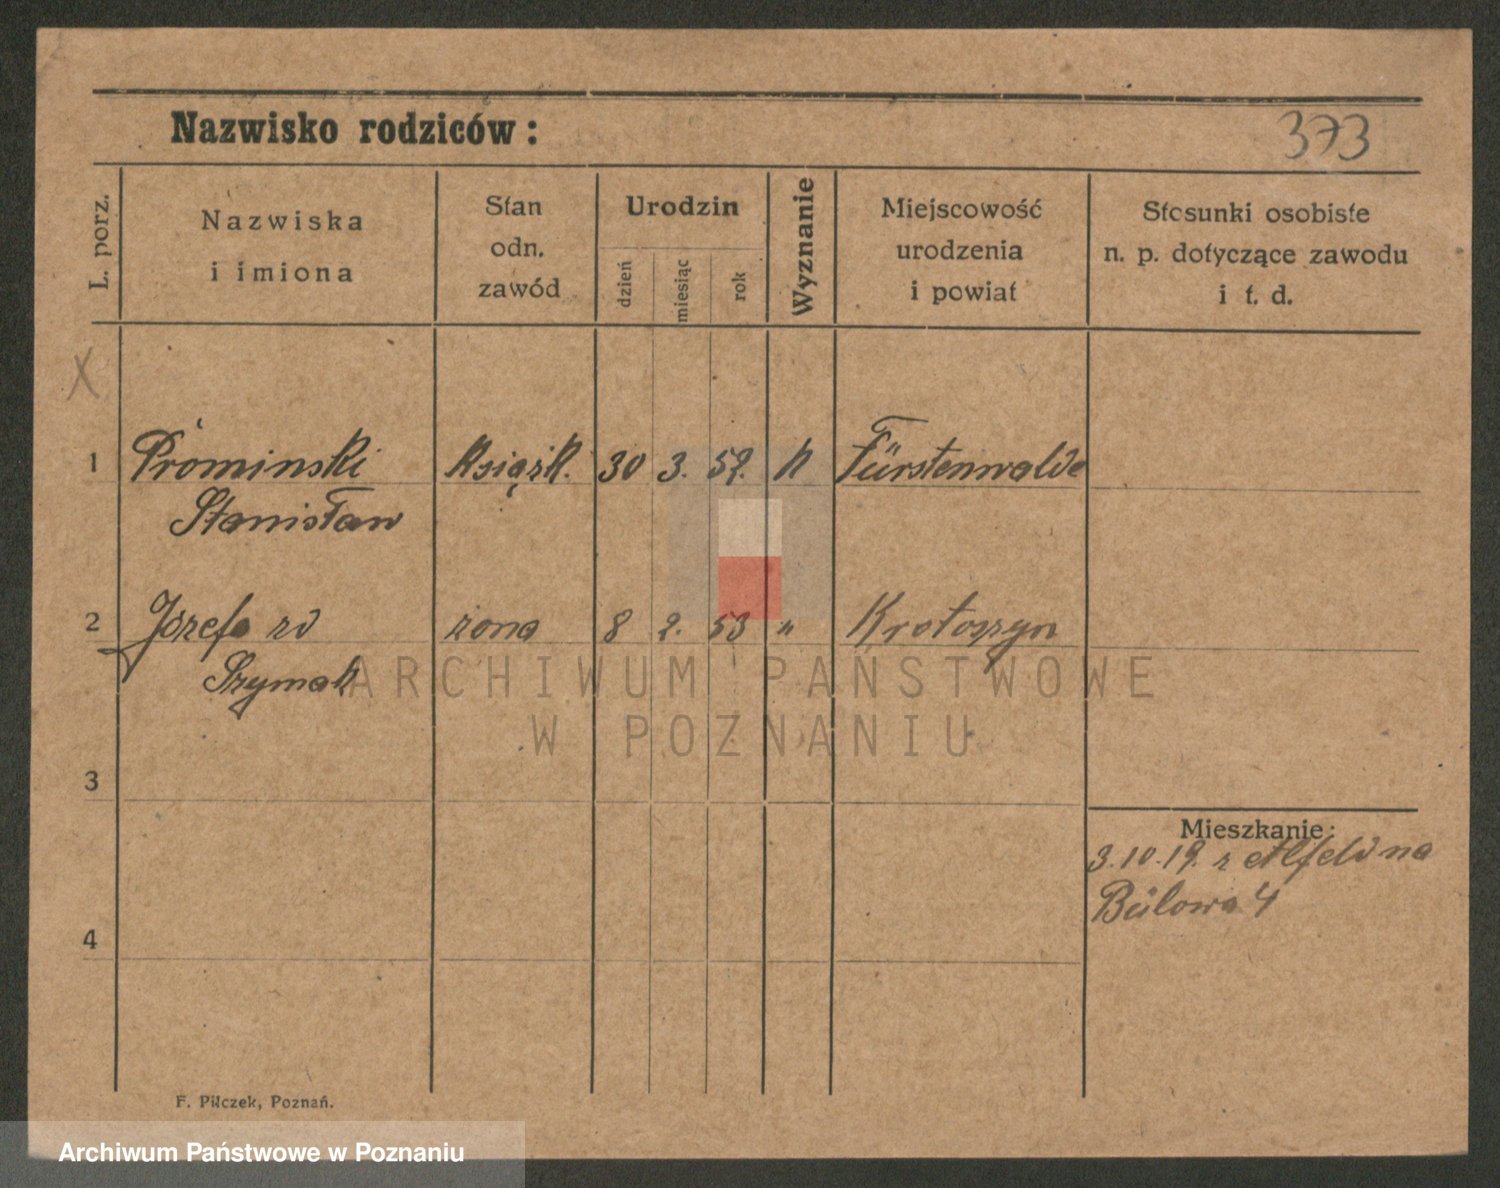 Nazwisko rodziców:
373
L. porz.
Nazwiska
i imiona
Stan
odn.
zawód
Urodzin
dzień
miesiąc
rok
Wyznanie
Miejscowość
urodzenia
i powiat
Stosunki osobiste
n. p. dotyczące zawodu
i t. d.
X
1 Prominski książk. 30 3. 59. k Fürstenwalde
Stanisław
2 Józefa zd żona 8 2. 53 " Krotoszyn
Szymak
ARCHIWUM PAŃSTWOWE
W POZNANIU
3
Mieszkanie:
3.10.19. z Alfeld na
Bülowa 4
4
F. Pilczek, Poznań.
Archiwum Państwowe w Poznaniu